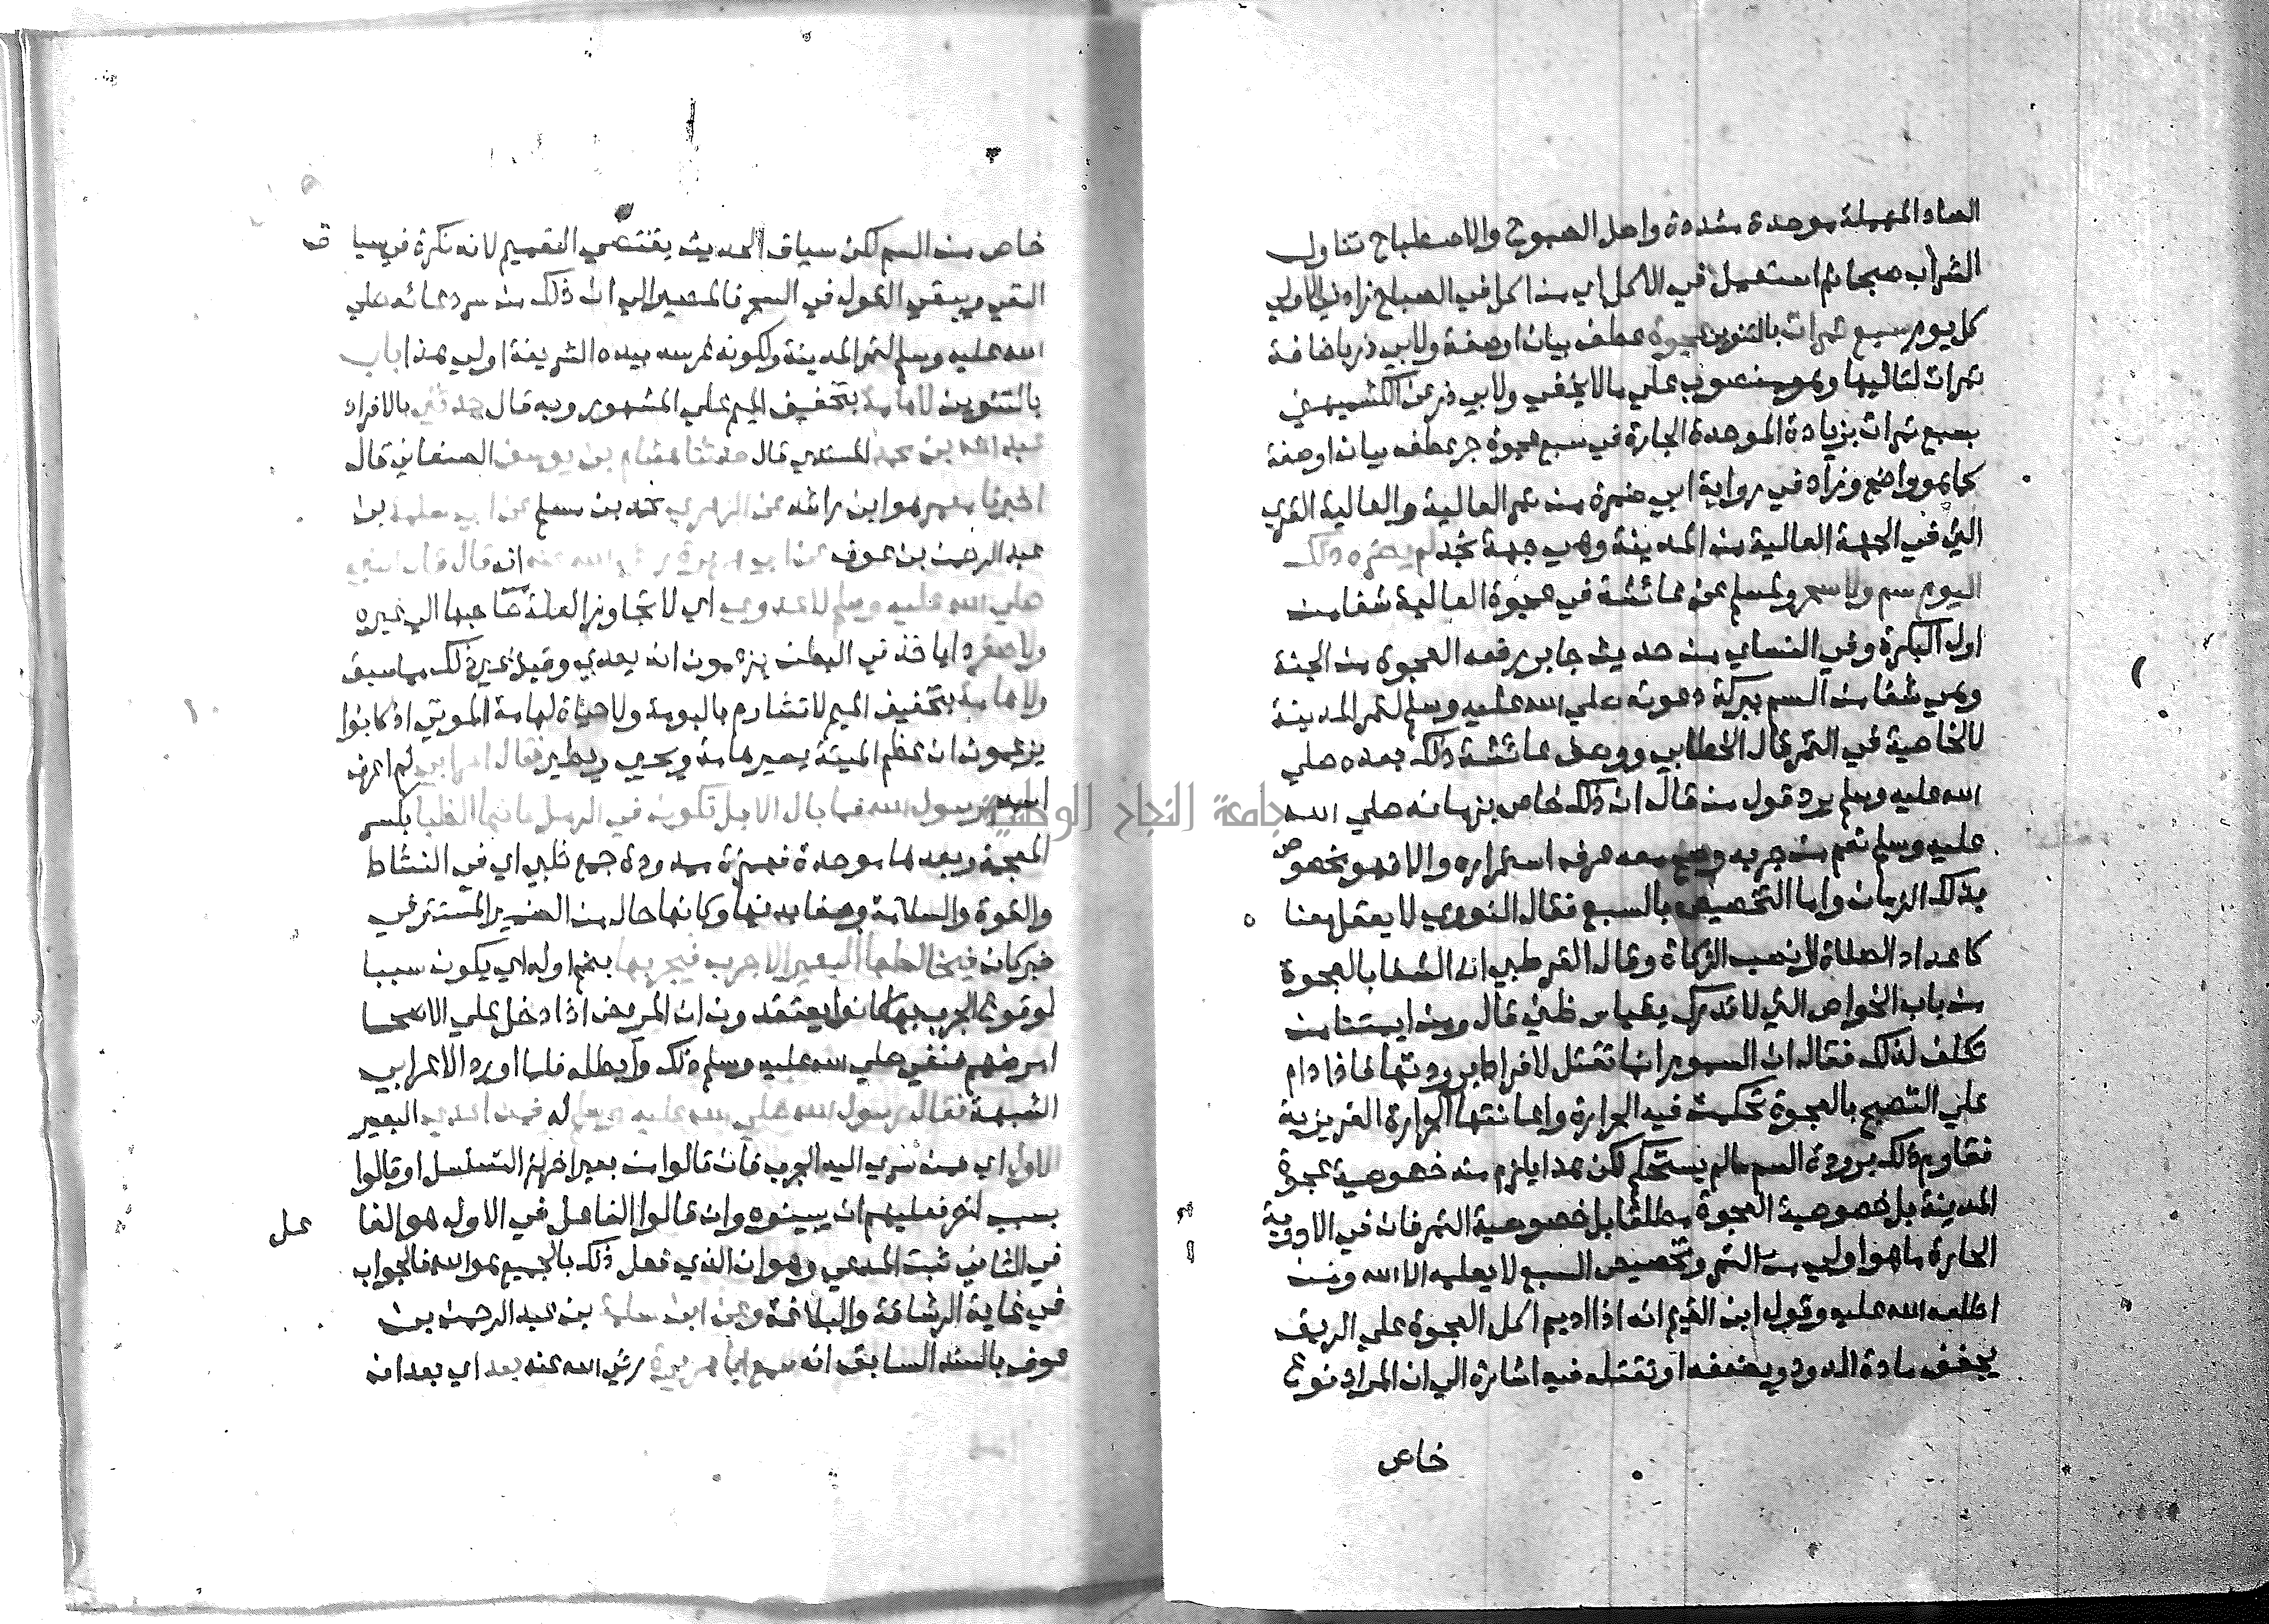 الصاد المهملة موحدة مشددة واصل الصبوح والاصطباح تناول
الشراب صبحا ثم استعمل في الاكل اي من اكل في الصباح زاد في الاولي
كل يوم سبع تمرات بالتنوين عجوة عطف بيان او صفة ولابي ذر باضافة
تمرات لتاليها وهو منصوب علي ما لا يخفي ولابي ذر عن الكشميهني
بسبع تمرات بزيادة الموحدة الجارة في سبع عجوة جر عطف بيان او صفة
كما هو واضح وزاد في رواية ابي ضمرة من تمر العالية والعالية القري
التي في الجهة العالية من المدينة وهي جهة نجد لم يضره ذلك
اليوم سم ولا سحر ولمسلم عن عائشة في عجوة العالية شفا من
اول البكرة وفي النساي من حديث جابر رفعه العجوة من الجنة
وهي شفا من السم ببركة دعوته صلي الله عليه وسلم لتمر المدينة
لا لخاصية في التمر قال الخطابي ووصف عائشة ذلك بعده صلي
الله عليه وسلم يرد قول من قال ان ذلك خاص بزمانه صلي الله
عليه وسلم نعم من جربه وصح معه عرف استمراره والا فهو مخصوص
بذلك الزمان واما التخصيص بالسبع فقال النووي لا يعقل معنا
كاعداد الصلاة لا نصب الزكاة وقال القرطبي ان الشفا بالعجوة
من باب الخواص التي لا تدرك بقياس ظني قال ومن ايمتنا من
تكلف لذلك فقال ان السموم انما تقتل لافراط برودتها فاذا دام
علي التصبح بالعجوة تحكمت فيه الحرارة واعانتها الحرارة الغريزية
فقاوم ذلك برودة السم ما لم يستحكم لكن هذا يلزم منه خصوصية عجوة
المدينة بل خصوصية العجوة مطلقا بل خصوصية التمر فان في الادوية
الحارة ما هو اولي من التمر وتخصيص السبع لا يعلمه الا الله ومن
اطلعه الله عليه وقول ابن القيم انه اذا اديم اكل العجوة علي الريق
يجفف مادة الدود ويضعفه او تقتله فيه اشارة الي ان المراد نوع
خاص
خاص من السم لكن سياق الحديث يقتضي التعميم لانه نكرة في سيا ق
النفي ويبقي القول في السحر فالمصير الي ان ذلك من سر دعائه صلي
الله عليه وسلم لتمر المدينة ولكونه غرسه بيده الشريفة اولي هذا باب
بالتنوين لا هامة بتخفيف الميم علي المشهور وبه قال حدثني بالافراد
عبد الله بن محمد المسندي قال حدثنا هشام بن يوسف الصنعاني قال
اخبرنا معمر هو ابن راشد عن الزهري محمد بن مسلم عن ابي سلمة بن
عبد الرحمن بن عوف عن ابي هريرة رضي الله عنه انه قال قال النبي
صلي الله عليه وسلم لا عدوي اي لا تجاوز العلة صاحبها الي غيره
ولا صفر دا ياخذ في البطن يزعمون انه يعدي وقيل غير ذلك مما سبق
ولا هامة بتخفيف الميم لا تشاوم بالبومة ولا حياة لهامة الموتي اذ كانوا
يزعمون ان عظم الميتة يصير هامة ويحيي ويطير فقال اعرابي لم اعرف
اسمه يا رسول الله فما بال الابل تكون في الرمل كانها الظبا بكسر
المعجمة وبعدها موحدة فهمزة ممدودة جمع ظبي اي في النشاط
والقوة والسلامة وصفا بدنها وكانها حال من الضمير المستتر في
خبر كان فيخالطها البعير الاجرب فيجربها بضم اوله اي يكون سببا
لوقوع الجرب بها كانوا يعتقدون ان المريض اذا دخل علي الاصحا
امرضهم فنفي صلي الله عليه وسلم ذلك وابطله فلما اورد الاعرابي
الشبهة فقال رسول الله صلي الله عليه وسلم له فمن اعدي البعير
الاول اي ممن سري اليه الجرب فان قالوا من بعير اخر لزم التسلسل او قالوا
بسبب اخر فعليهم ان يبينوه وان قالوا الفاعل في الاول هو الفا عل
في الثاني ثبت المدعي وهو ان الذي فعل ذلك بالجميع هو الله فالجواب
في غاية الرشاقة والبلاغة وعن ابي سلمة بن عبد الرحمن بن
عوف بالسند السابق انه سمع ابا هريرة رضي الله عنه بعد اي بعد ان
جامعة النجاح الوطنية